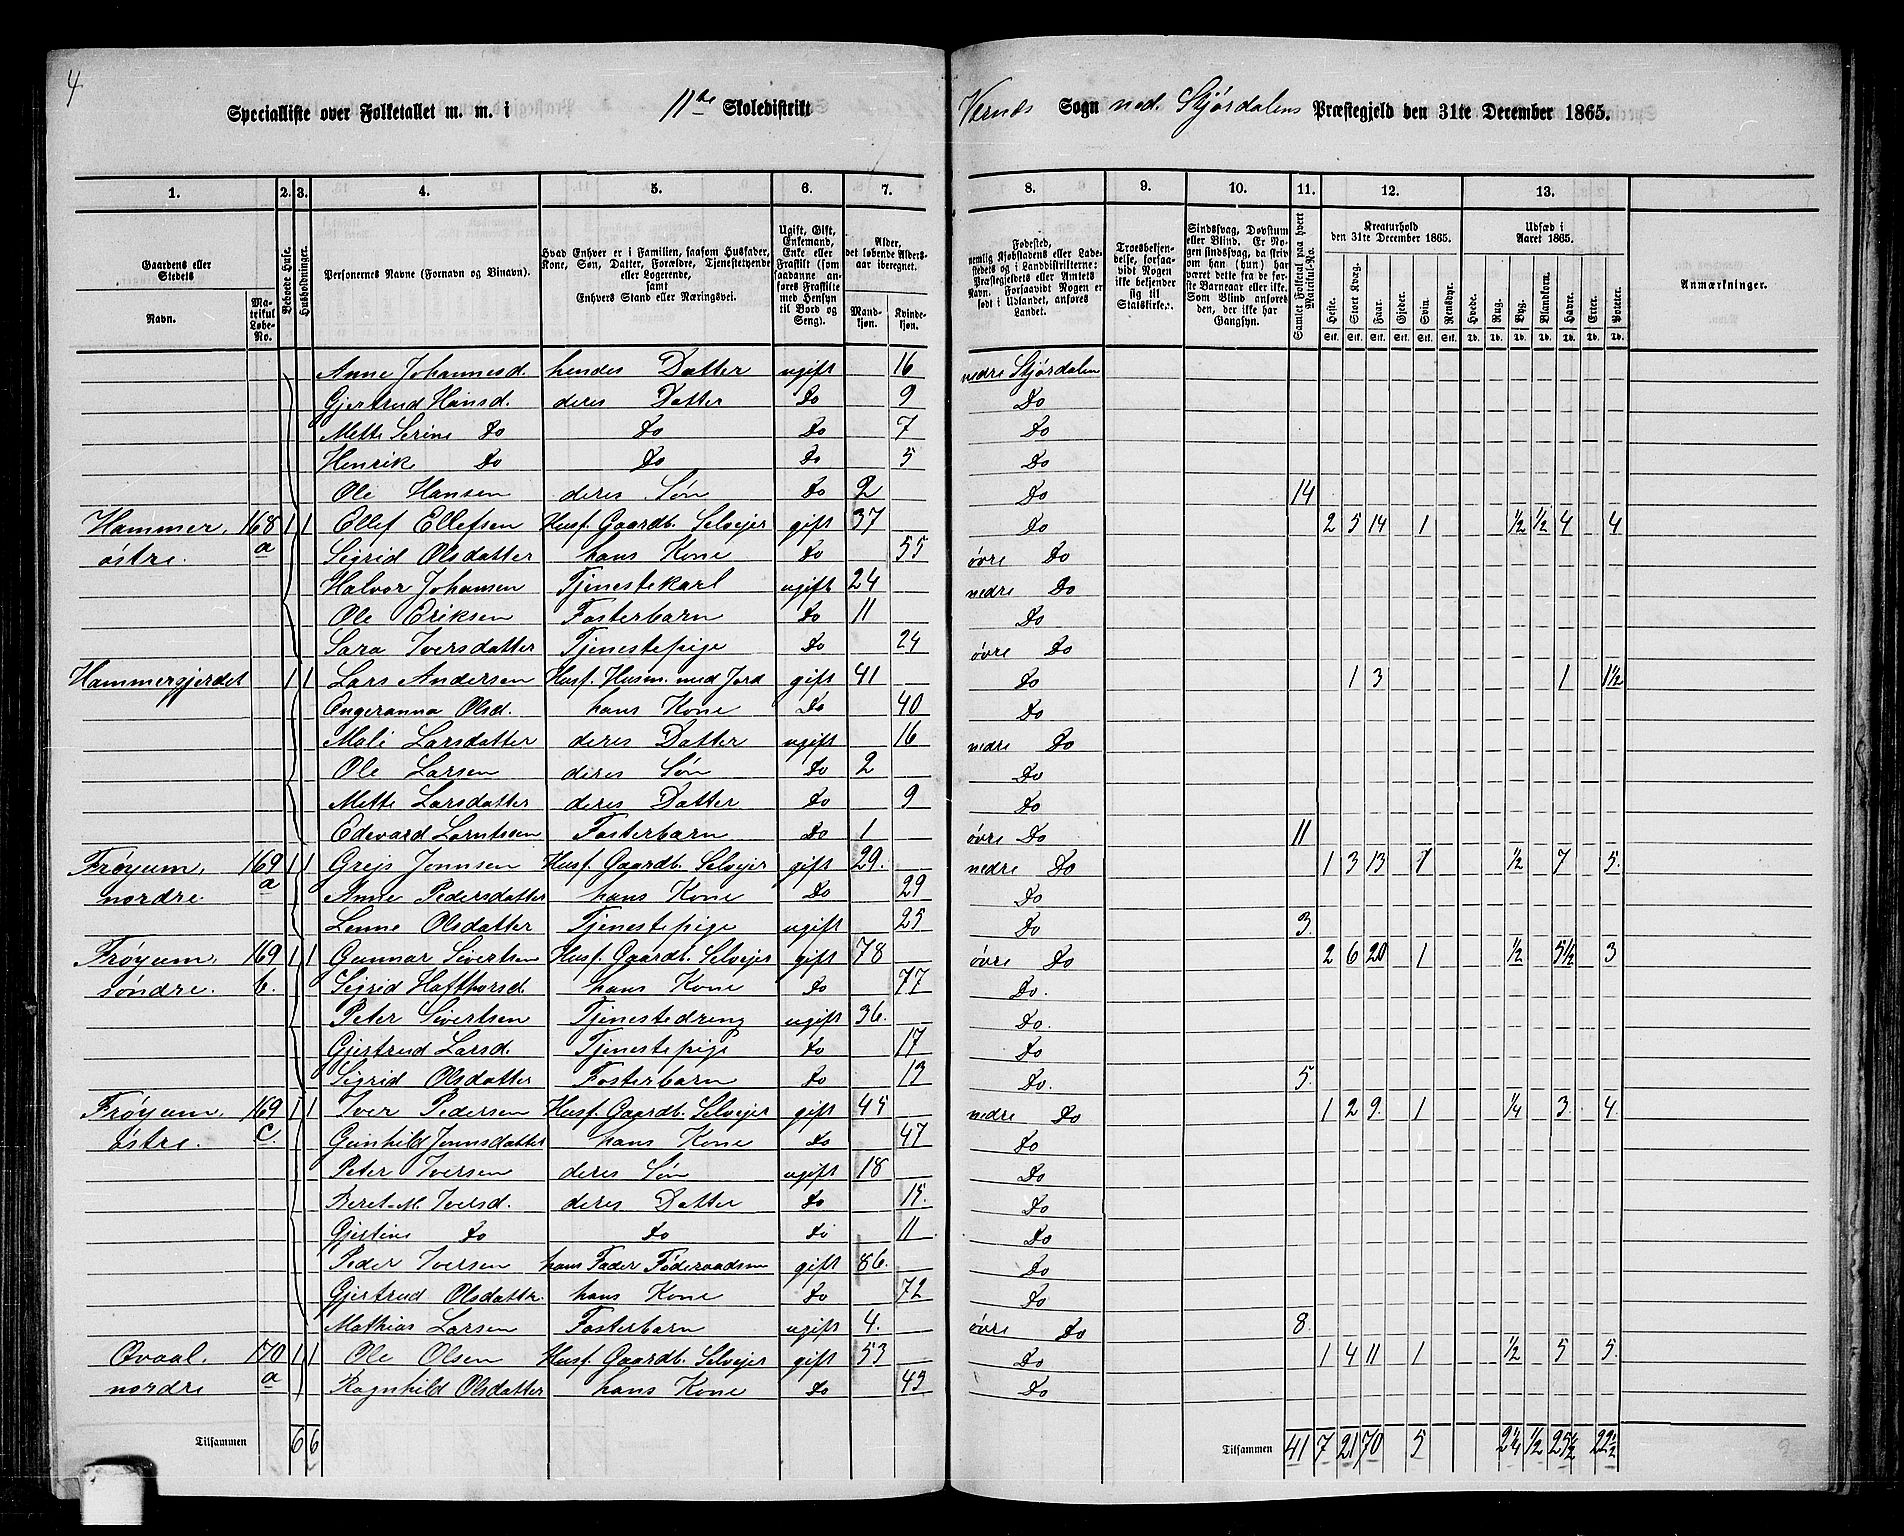 4
Specialliste over Folketallet m. m. i 11te Skoledistrikt Vernæs Sogn ned. Stjørdalens Præstegjeld den 31te December 1865.
1. 2. 3. 4. 5. 6. 7. 8. 9. 10. 11. 12. 13.
Gaardens eller Stedets
Navn. Matrikul Løbe-No.
Beboede Huse.
Husholdninger.
Personernes Navne (Fornavn og Binavn).
Hvad Enhver er i Familien, saasom Husfader, Kone, Søn, Datter, Forældre, Tjenestetyende eller Logerende, samt Enhvers Stand eller Næringsvei.
Ugift, Gift, Enkemand, Enke eller Fraskilt (som saadanne anføres Fraskilte med Hensyn til Bord og Seng).
Alder, det løbende Aldersaar iberegnet.
Mandkjøn. Kvindekjøn.
Fødested, nemlig Kjøbstadens eller Ladestedets og i Landdistrikterne: Præstegjeldets eller Amtets Navn. Forsaavidt Nogen er født i Udlandet, anføres Landet.
Troesbekjendelse, forsaavidt Nogen ikke bekjender sig til Statskirken.
Sindssvag, Døvstum eller Blind. Er Nogen sindssvag, da skriv om han (hun) har været dette fra de første Barneaar eller ikke. Som Blind anføres den, der ikke har Gangsyn.
Samlet Folketal paa hvert Matrikul-No.
Kreaturhold den 31te December 1865.
Heste. Stort Kvæg. Faar. Gjeder. Svin. Rensdyr.
Udsæd i Aaret 1865.
Hvede. Rug. Byg. Blandkorn. Havre. Erter. Poteter.
Anmærkninger.
Anne Johannesd. hendes Datter ugift 16 nedre Stjørdalen
Gjertrud Hansd. deres Datter Do 9 Do
Mette Serine Do Do Do 7 Do
Henrik Do Do Do 5 Do
Ole Hansen deres Søn Do 2 Do 14
Hammer, 168 1 1 Ellef Ellefsen Husf. Gaardb. Selvejer gift 37 Do 2 5 14 1 1/2 1/2 4 4
østre. a Sigrid Olsdatter hans Kone Do 55 øvre Do
Halvor Johansen Tjenestekarl ugift 24 nedre Do
Ole Eriksen Fosterbarn Do 11 Do
Sara Iversdatter Tjenestepige Do 24 øvre Do
Hammergjerdet 1 1 Lars Andersen Husf. Husm. med Jord gift 41 Do 1 3 1 1 1/2
Ongeranna Olsd. hans Kone Do 40 Do
Mali Larsdatter deres Datter ugift 16 nedre Do
Ole Larsen deres Søn Do 2 Do
Mette Larsdatter deres Datter Do 9 Do
Edevard Larntsen Fosterbarn Do 1 øvre Do 11
Frøyum, 169 1 1 Grejs Jonnsen Husf. Gaardb. Selvejer gift 29. nedre Do 1 3 13 1 1/2 7 5.
nordre. a Anne Pedersdatter hans Kone Do 29 Do
Lenne Olsdatter Tjenestepige ugift 25 Do 3.
Frøyum, 169 1 1 Gunnar Sivertsen Husf. Gaardb. Selvejer gift 78 øvre Do 2 6 20 1 1/2 5 1/2 3
søndre. b. Sigrid Hafthorsd. hans Kone Do 77 Do.
Peter Sivertsen Tjenestedreng ugift 36. Do.
Gjertrud Larsd. Tjenestepige Do 17 Do
Sigrid Olsdatter Fosterbarn Do 13 Do. 5.
Frøyum, 169 1 1 Iver Pedersen Husf. Gaardb. Selvejer gift 45 nedre Do 1 2 9. 1 1/4 3. 4.
østre. c. Gunhild Jonnsdatter hans Kone Do 47 Do
Peter Iversen deres Søn ugift 18 Do
Beret M. Iversd. deres Datter Do 15. Do
Gjestine Do Do Do 11 Do
Peder Iversen hans Fader Føderaadsm gift 86. Do
Gjertrud Olsdattr. hans Kone Do 72 Do
Mathias Larsen Fosterbarn ugift 4. øvre Do 8.
Qvaal. 170 1 1 Ole Olsen Husf. Gaardb. Selvejer gift 53 Do 1 4 11 1 1/2 5 5.
nordre a Ragnhild Olsdatter hans Kone Do 43 Do
Tilsammen 6 6 Tilsammen 41 7 21 70 5 2 1/4 1/2 25 1/2 22 1/2